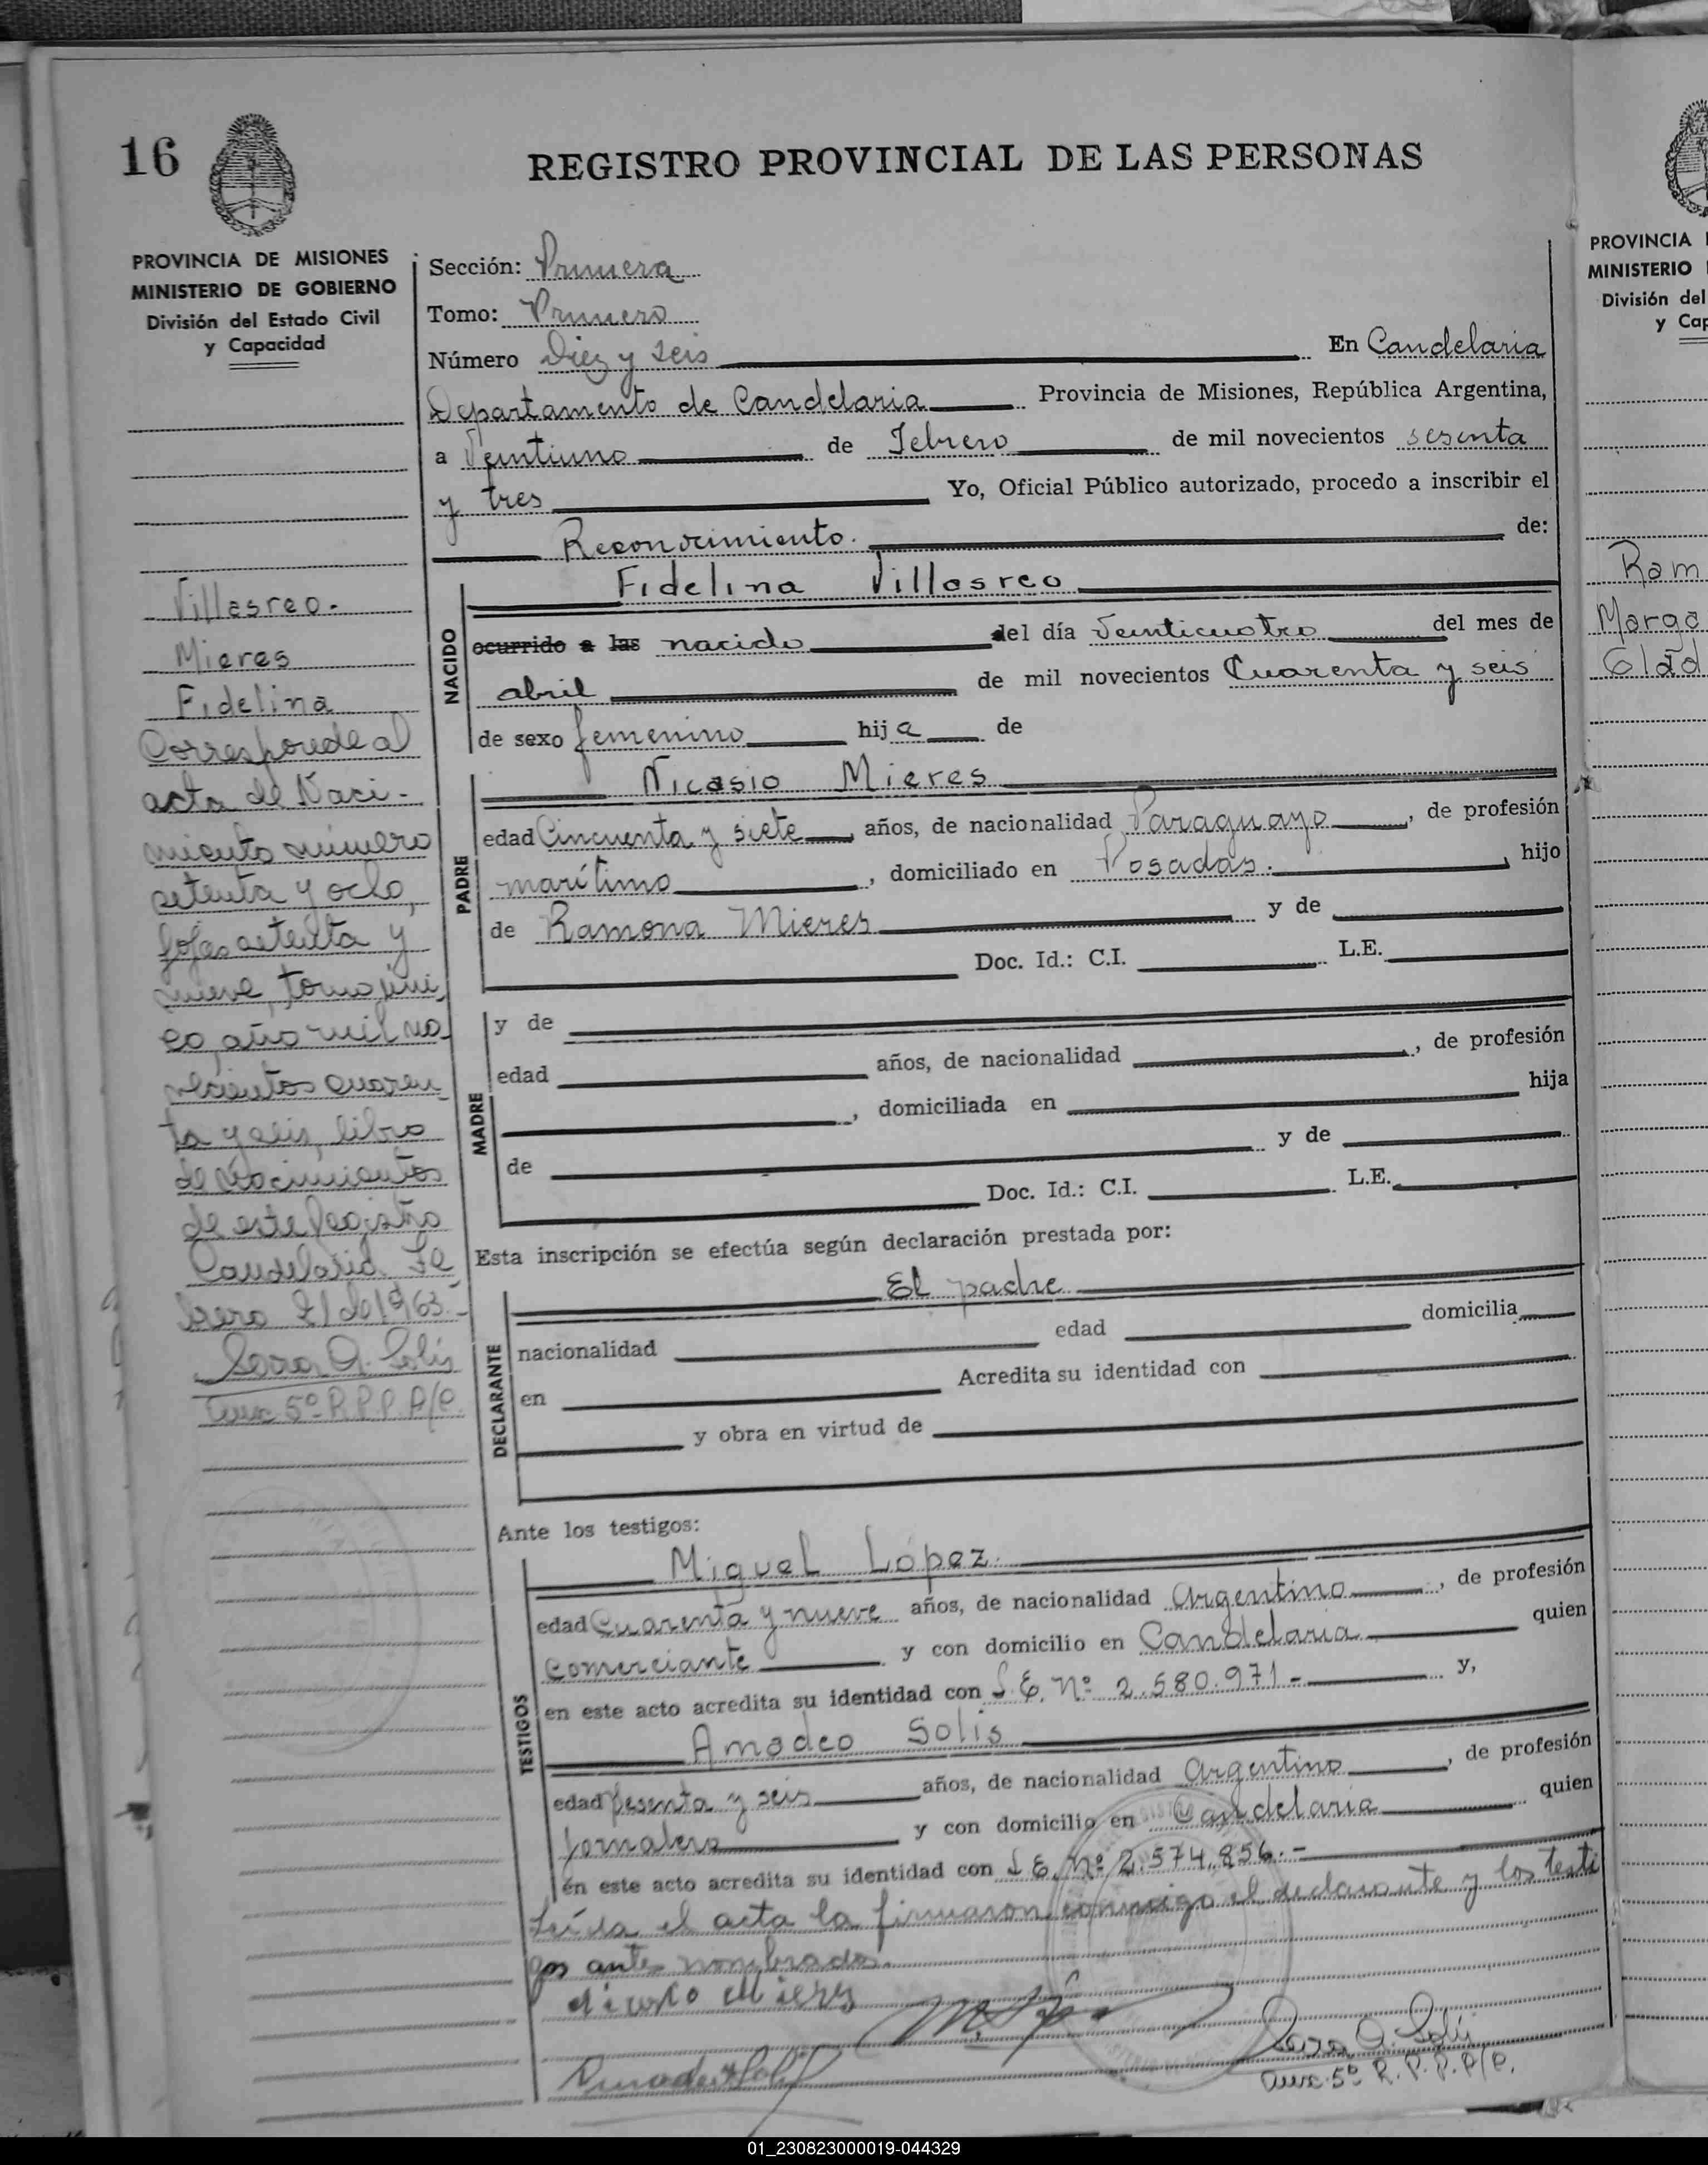 16
REGISTRO PROVINCIAL DE LAS PERSONAS
PROVINCIA DE MISIONES
MINISTERIO DE GOBIERNO
División del Estado Civil
y Capacidad
Villasreo.
Mieres
Fidelina
Corresponde al
acta de Naci-
miento número
setenta y ocho,
fojas setenta y
nueve, tomo úni
co, año mil no
vecientos cuaren
ta y seis, libro
de Nacimientos
de este Registro
Candelaria Fe
brero 21 de 1963.-
Sara A. Solis
Aux. 5º R.P.P. A/C.
Sección: Primera
Tomo: Primero
Número Diez y seis En Candelaria
Departamento de Candelaria Provincia de Misiones, República Argentina,
a Veintiuno de Febrero de mil novecientos sesenta
y tres Yo, Oficial Público autorizado, procedo a inscribir el
Reconocimiento. de:
NACIDO
Fidelina Villasreo
ocurrido a las nacido del día Veinticuatro del mes de
abril de mil novecientos Cuarenta y seis
de sexo femenino hija de
PADRE
Nicasio Mieres
edad Cincuenta y siete, años, de nacionalidad Paraguayo, de profesión
marítimo, domiciliado en Posadas. hijo
de Ramona Mieres y de
Doc. Id.: C.I. L.E.
MADRE
y de
edad años, de nacionalidad , de profesión
, domiciliada en hija
de y de
Doc. Id.: C.I. L.E.
Esta inscripción se efectúa según declaración prestada por:
DECLARANTE
El padre
nacionalidad edad domicilia
en Acredita su identidad con
y obra en virtud de
Ante los testigos:
TESTIGOS
Miguel López.
edad Cuarenta y nueve años, de nacionalidad Argentino, de profesión
comerciante y con domicilio en Candelaria quien
en este acto acredita su identidad con L.E. Nº 2.580.971.- y,
Amadeo Solis
edad sesenta y seis años, de nacionalidad Argentino, de profesión
Jornalero y con domicilio en Candelaria quien
en este acto acredita su identidad con L.E. Nº 2.574.856.-
Leída el acta la firmaron conmigo el declarante y los testi
gos ante nombrados.
Sara A. Solis
Aux. 5º R.P.P. A/C.
PROVINCIA
MINISTERIO
División del
y Cap
Ram
Marga
Glad
01_230823000019-044329